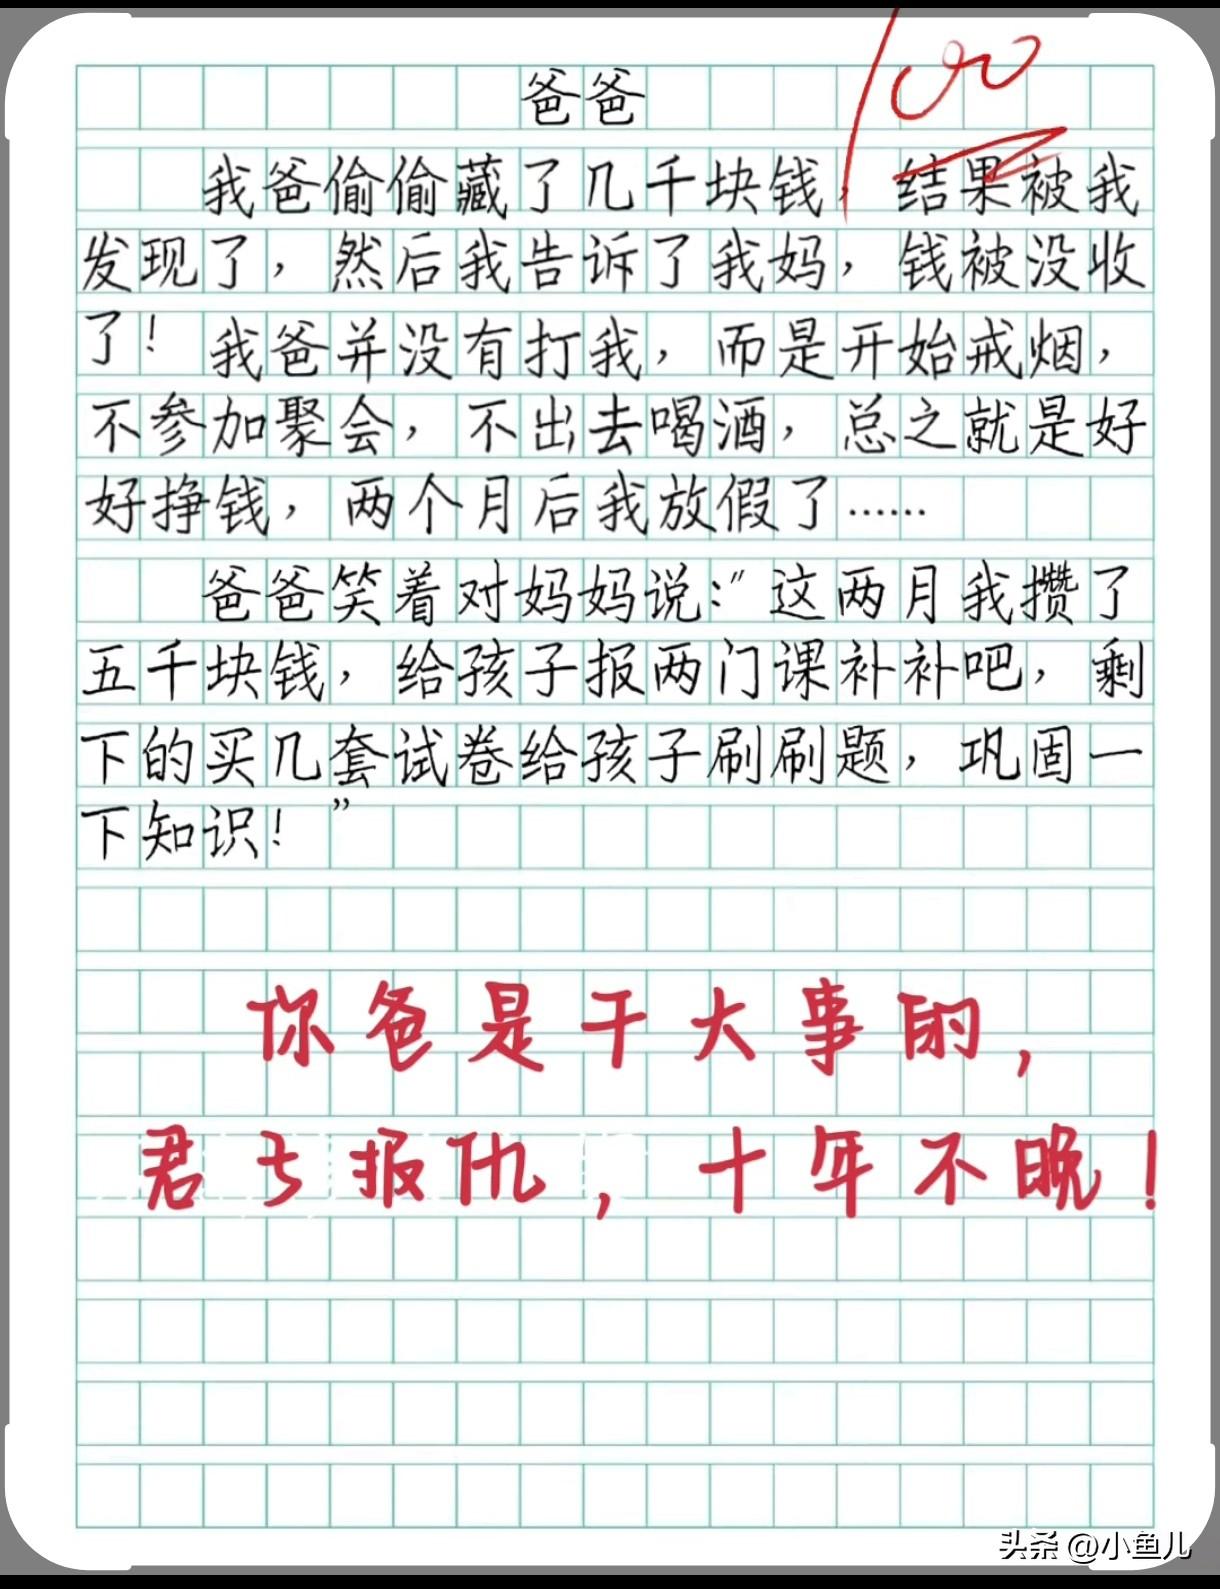 爸爸
100
我爸偷偷藏了几千块钱，结果被我
发现了，然后我告诉了我妈，钱被没收
了！我爸并没有打我，而是开始戒烟，
不参加聚会，不出去喝酒，总之就是好
好挣钱，两个月后我放假了……
爸爸笑着对妈妈说：“这两月我攒了
五千块钱，给孩子报两门课补补吧，剩
下的买几套试卷给孩子刷刷题，巩固一
下知识！”
你爸是干大事的，
君子报仇，十年不晚！
头条 @小鱼儿